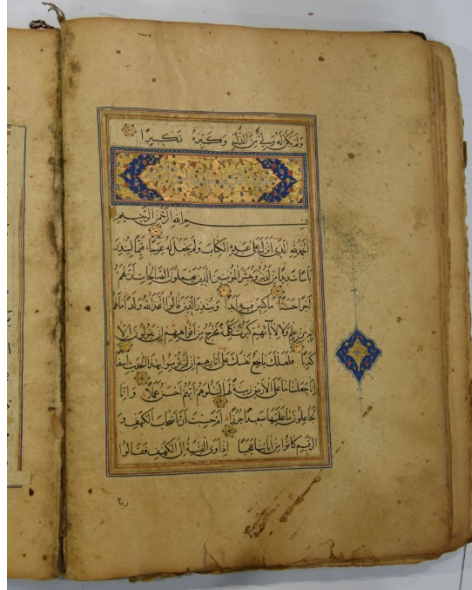 ولم يكن له ولي من الذل وكبره تكبيرا
بسم الله الرحمن الرحيم
الحمد لله الذي انزل على عبده الكتاب ولم يجعل له عوجا قيما لينذر
بأسا شديدا من لدنه ويبشر المؤمنين الذين يعملون الصالحات ان لهم
اجرا حسنا ماكثين فيه ابدا وينذر الذين قالوا اتخذ الله ولدا ما لهم
به من علم ولا لآبائهم كبرت كلمة تخرج من افواههم ان يقولون الا
كذبا فلعلك باخع نفسك على آثارهم ان لم يؤمنوا بهذا الحديث اسفا
انا جعلنا ما على الارض زينة لها لنبلوهم ايهم احسن عملا وانا
لجاعلون ما عليها صعيدا جرزا ام حسبت ان اصحاب الكهف و
الرقيم كانوا من آياتنا عجبا اذ اوى الفتية الى الكهف فقالوا